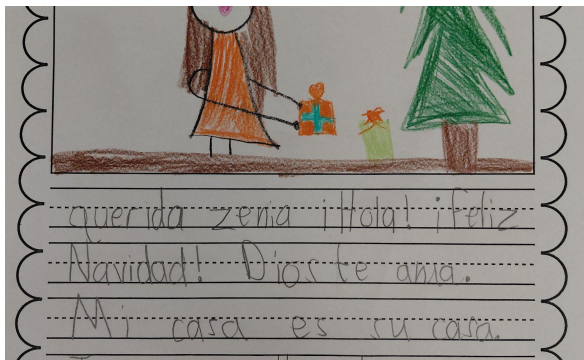 querida zenia ¡Hola! ¡feliz
Navidad! Dios te ama.
Mi casa es su casa.